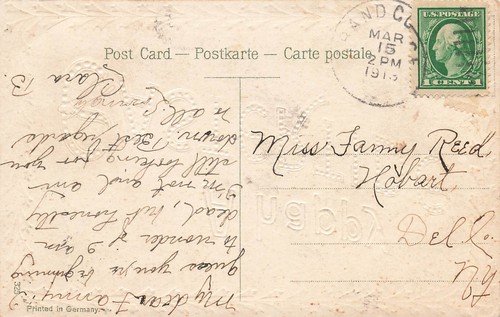 Post Card — Postkarte — Carte postale
MAR
15
2 PM
U.S. POSTAGE
1 CENT 1
Miss Fanny Reed,
Hobart,
Del. Co.
N.Y.
My dear Fanny:
guess you're beginning
to wonder if I am
dead, but honestly
I'm not and am
still looking for you
down. Best regards
to all.
Clara B.
Printed in Germany.